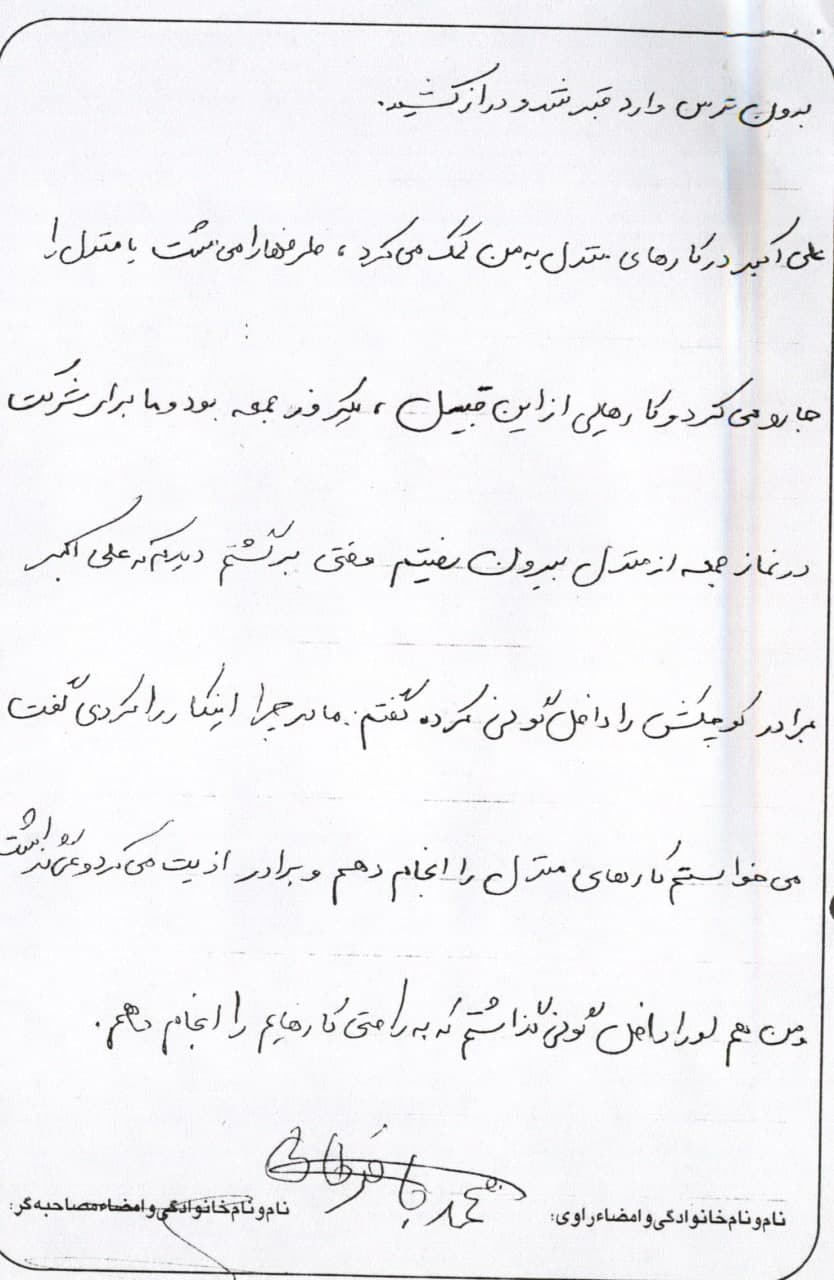 بدون ترس وارد قبر شد و دراز کشید.
علی اکبر در کارهای منزل به من کمک می‌کرد، ظرفها را می شست یا منزل را
جارو می کرد و کارهایی از این قبیل، یکروز جمعه بود و ما برای شرکت
در نماز جمعه از منزل بیرون رفتیم وقتی برگشتم دیدم که علی اکبر
برادر کوچکش را داخل گونی کرده گفتم: مادر چرا اینکار را کردی گفت
می خواستم کارهای منزل را انجام دهم و برادر اذیت می کرد و نمی گذاشت
و من هم او را داخل گونی گذاشتم که به راحتی کارهایم را انجام دهم.
نام و نام خانوادگی و امضاء راوی: نام و نام خانوادگی و امضاء مصاحبه گر: